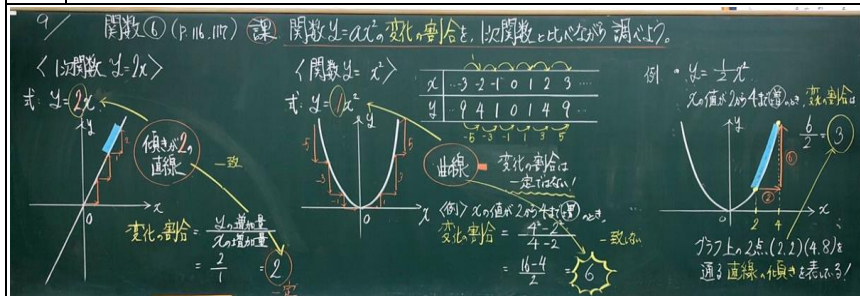 9/
関数⑥(P.116.117) 課 関数y=ax²の変化の割合を、1次関数と比べながら調べよう。
〈1次関数 y=2x〉
式: y=2x
y
傾きが2の
直線
一致
x
0
変化の割合 = yの増加量/xの増加量
= 2/1 = 2
一定
〈関数 y=x²〉
式: y=1x²
x … -3 -2 -1 0 1 2 3 …
y … 9 4 1 0 1 4 9 …
-5 -3 -1 1 3 5
y
-5 -3 -1 1 3 5
0
x
曲線
変化の割合は
一定ではない!
〈例〉xの値が2から4まで増のとき、
変化の割合 = 4²-2²/4-2
= 16-4/2 = 6
一致しない
例 ・y=1/2x²
xの値が2から4まで増のとき、変化の割合は
6/2 = 3
y
⑥
②
0 2 4 x
グラフ上の2点、(2,2)(4,8)を
通る直線の傾きを表している!